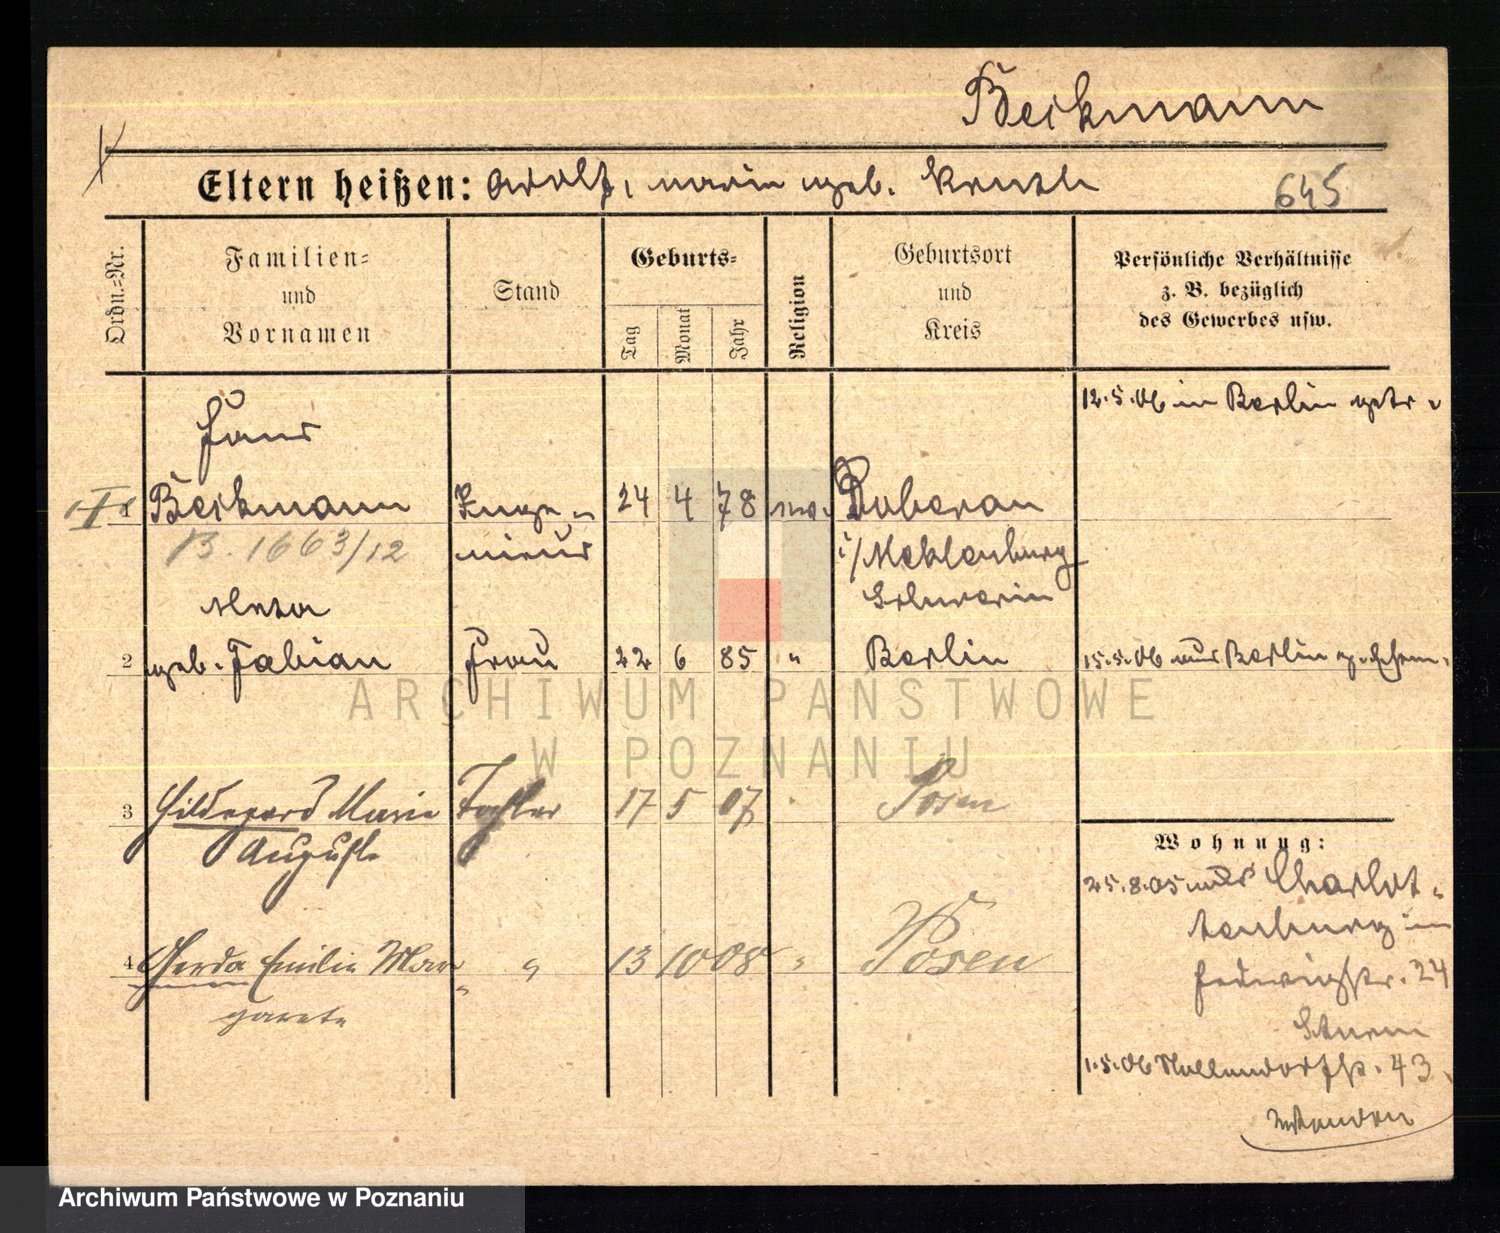 Beckmann
Eltern heißen: Adolf, Marie geb.
645
Ordn.-Nr.
Familien-
und
Vornamen
Stand
Geburts-
Tag
Monat
Jahr
Religion
Geburtsort
und
Kreis
Persönliche Verhältnisse
z. B. bezüglich
des Gewerbes usw.
12.5.06 in Berlin getr.
Hans
Beckmann
Inge-
nieur
24 4 78
Doberan
B. 1663/12
i/Meklenburg
Schwerin
Meta
2 geb. Fabian Frau 22 6 85 " Berlin
15.5.06 aus Berlin
ARCHIWUM PAŃSTWOWE
W POZNANIU
3 Hildegard Marie Tochter 17 5 07 " Posen
Auguste
Wohnung:
25.8.05 aus Charlot-
tenburg in
Hedwigstr. 24
Sturm
4 Gerda Emilie Mar- " 13 10 08 " Posen
garete
1.5.06 Nollendorfstr. 43
wenden
Archiwum Państwowe w Poznaniu